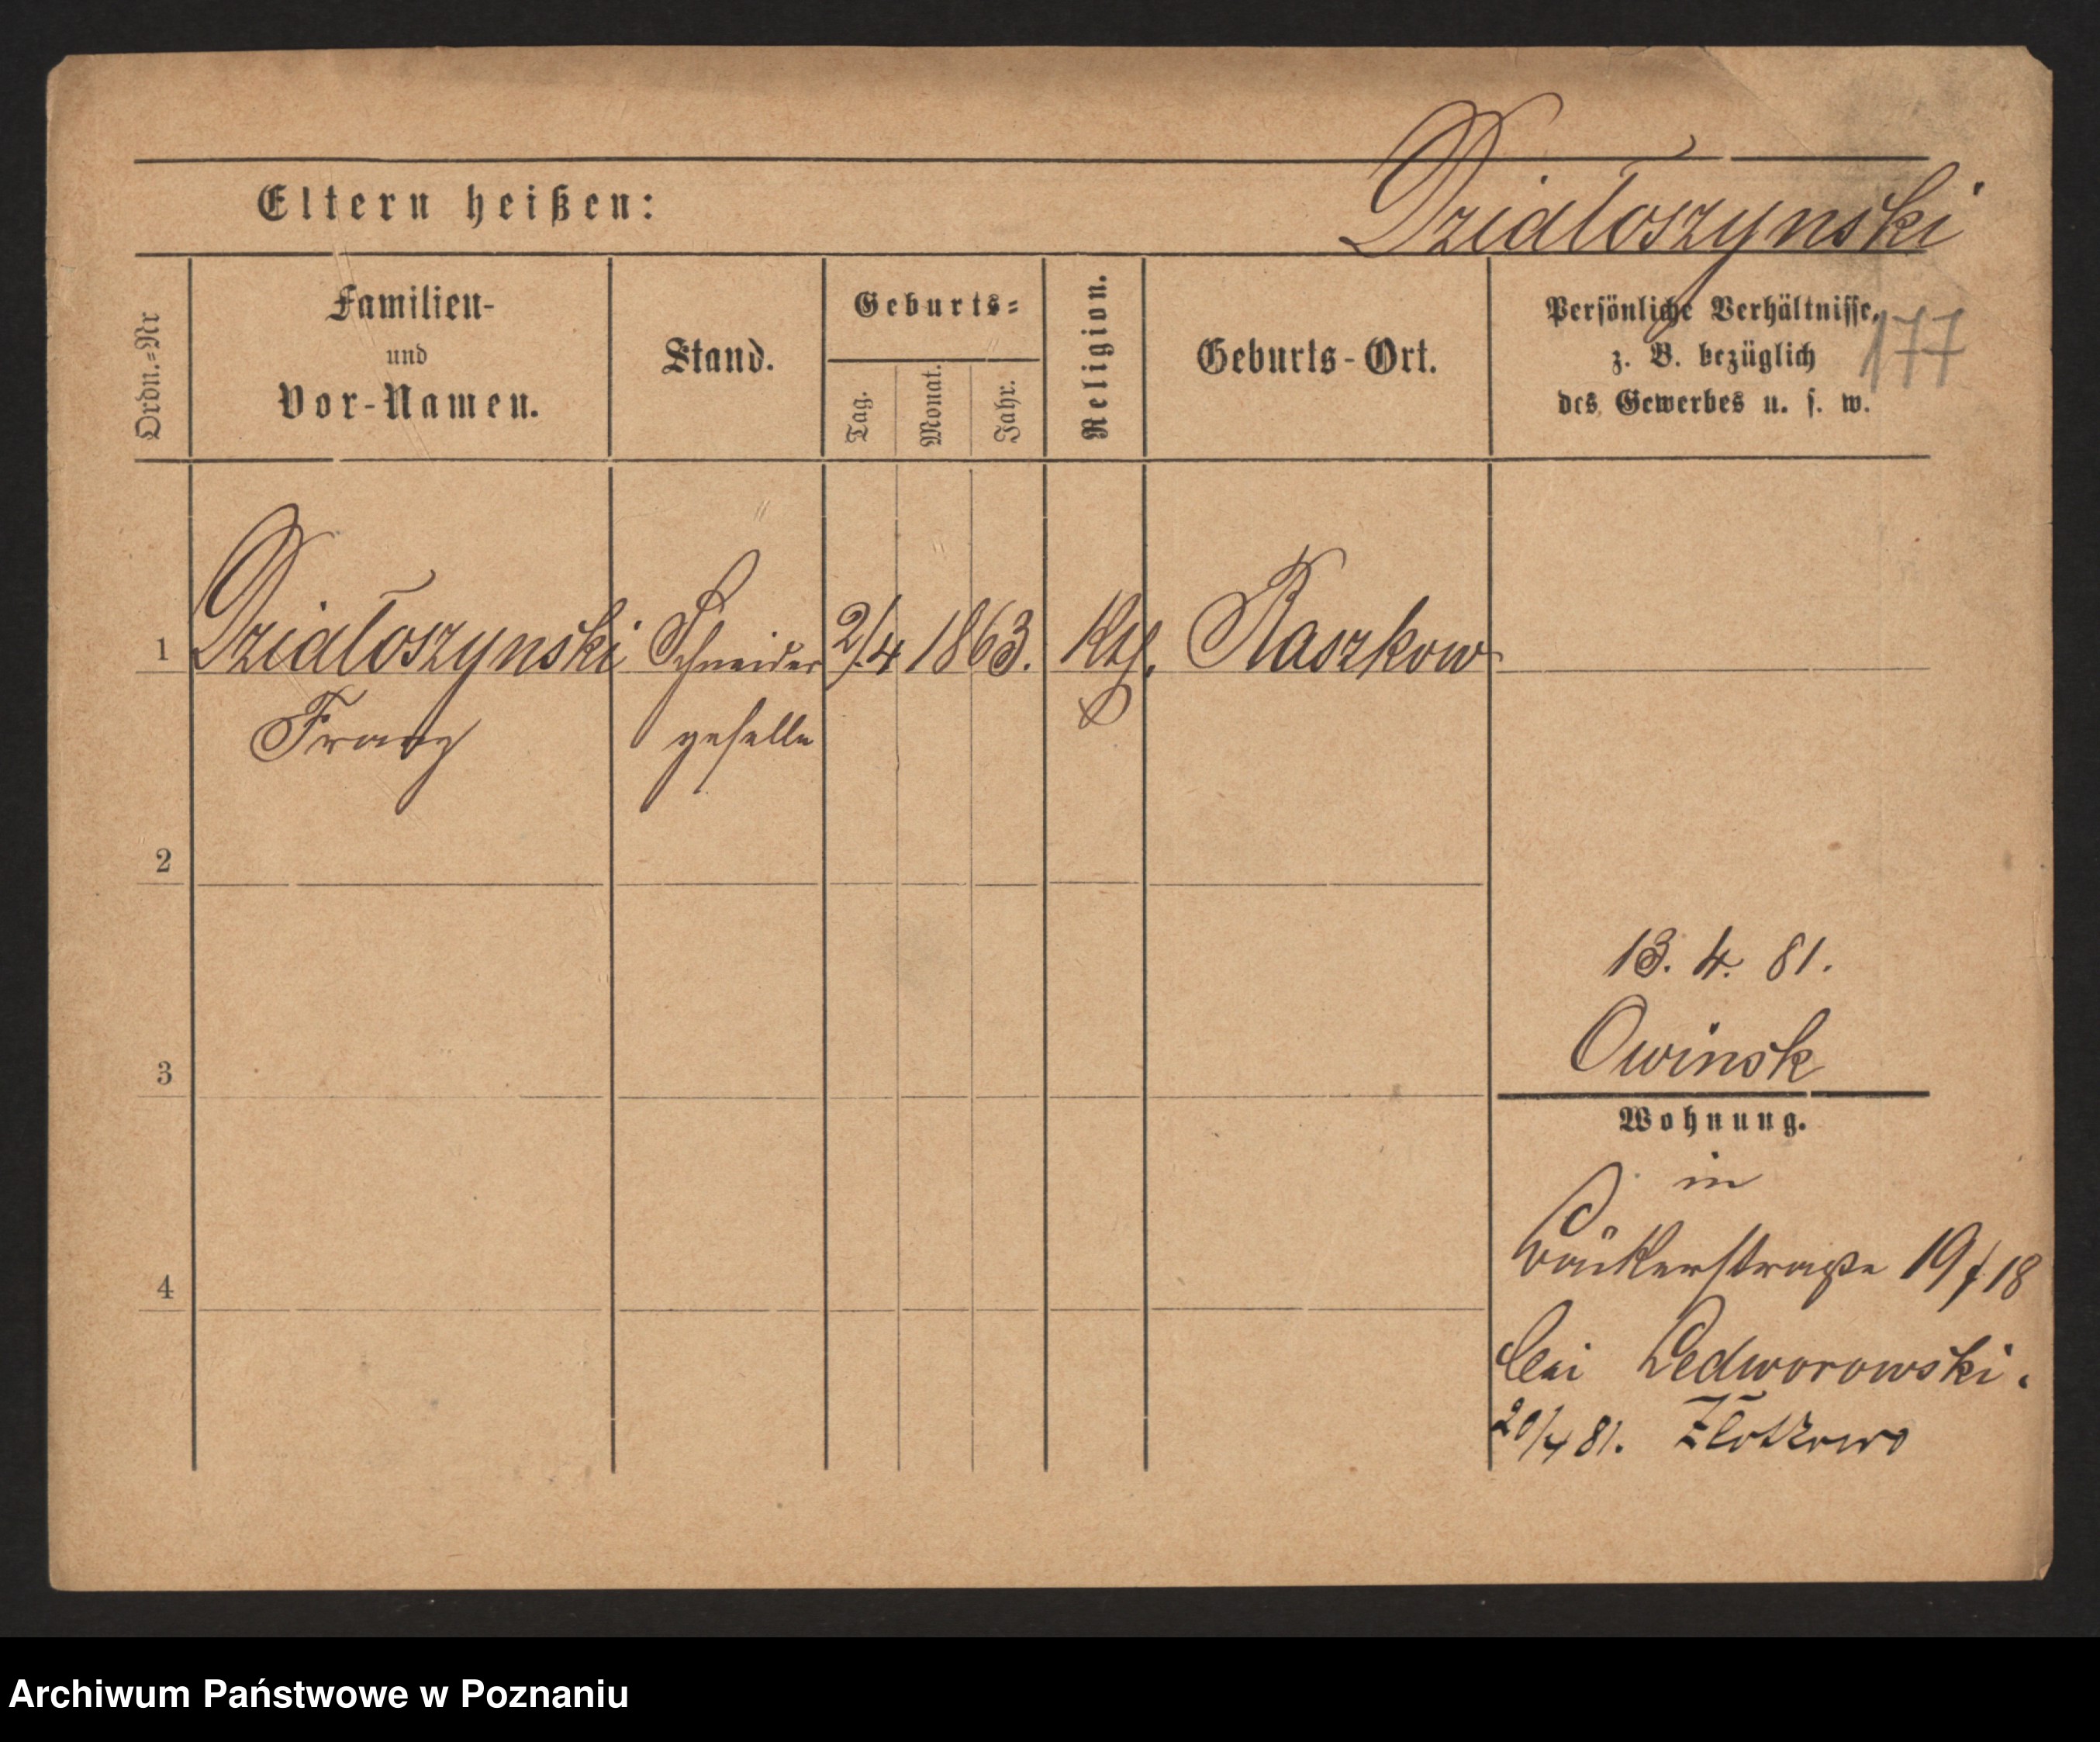 Dziatoszynski
Eltern heißen:
Ordn.=Nr
Familien-
und
Vor-Namen.
Stand.
Geburts=
Tag.
Monat.
Jahr.
Religion.
Geburts-Ort.
Persönliche Verhältnisse,
z. B. bezüglich
des Gewerbes u. s. w.
177
1 Działoszynski Schneider 2/4 1863. Kth. Raszkow
Franz geselle
2
13. 4. 81.
Owinsk
3
Wohnung.
in
4
19/18
bei Ledworowski.
20/4 81. Złotkowo
Archiwum Państwowe w Poznaniu